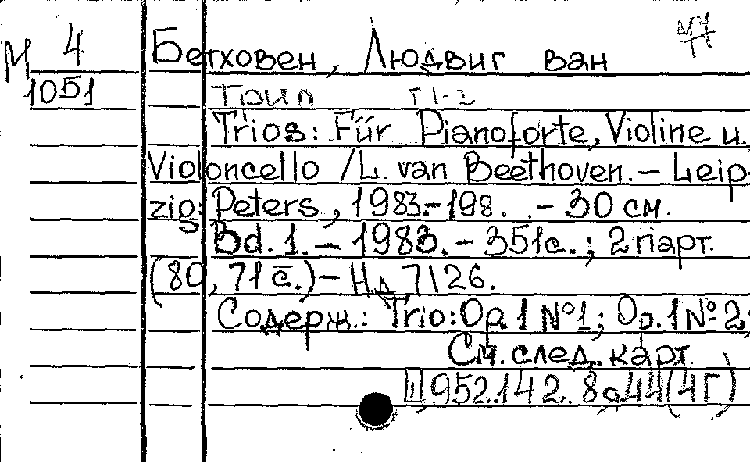 М 4 Бетховен, Людвиг ван
1051
Trios: Für Pianoforte, Violine u.
Violoncello /L. van Beethoven. – Leip-
zig: Peters, 1983.-198. . – 30 см.
Bd. 1. – 1983. – 351с.; 2 парт.
(80, 71 с.) – Нд 7126.
Содерж.: Trio: Op.1 №1; Op.1 №2;
См. след. карт.